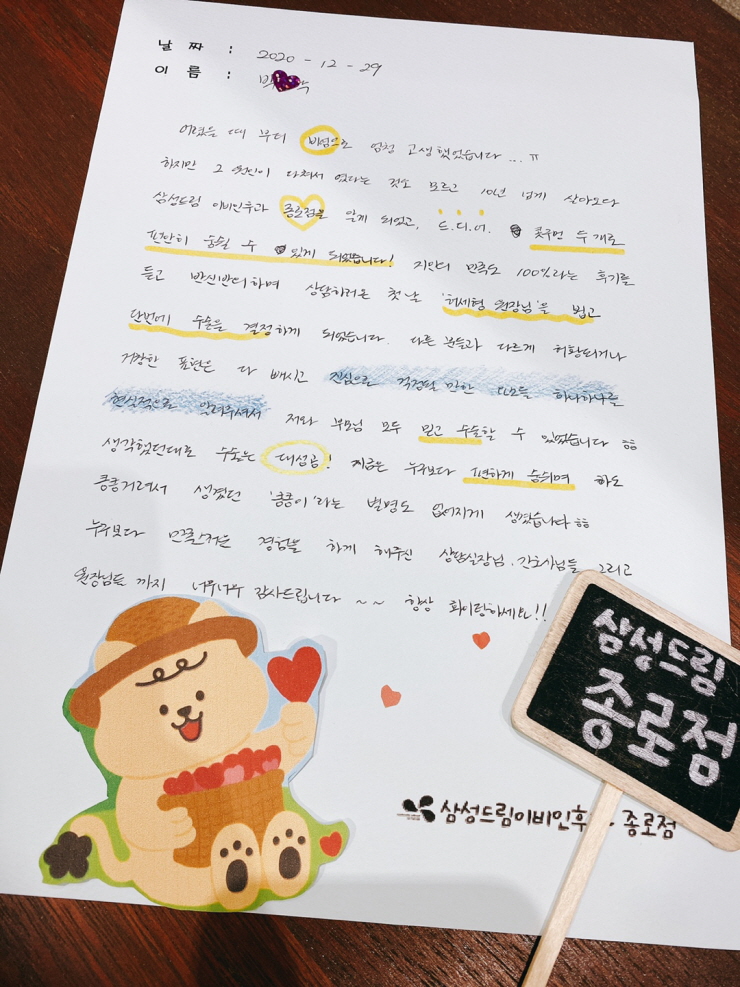 날 짜 : 2020 - 12 - 29
이 름 : 박
어렸을 때 부터 비염으로 엄청 고생했었습니다 ... ㅠ
하지만 그 원인이 다쳐서 였다는 것도 모르고 10년 넘게 살아오다
삼성드림 이비인후과 종로점을 알게 되었고, 드.디.어. 콧구멍 두개로
편안히 숨쉴 수 있게 되었습니다! 지인이 만족도 100%라는 후기를
듣고 반신반의하며 상담하러온 첫날 '허세형 원장님'을 뵙고
단번에 수술을 결정하게 되었습니다. 다른 분들과 다르게 허황되거나
거창한 표현은 다 빼시고 진심으로 걱정될 만한 요소들 하나하나를
현실적으로 알려주셔서 저와 부모님 모두 믿고 수술할 수 있었습니다 ㅎㅎ
생각했던대로 수술은 대성공! 지금은 누구보다 편하게 숨쉬며 하도
킁킁거려서 생겼던 '킁킁이'라는 별명도 없어지게 생겼습니다 ㅎㅎ
누구보다 만족스러운 경험을 하게 해주신 상담실장님, 간호사님들 그리고
원장님들 까지 너무너무 감사드립니다 ~ ~ 항상 화이팅하세요!!
삼성드림
종로점
삼성드림이비인후 종로점